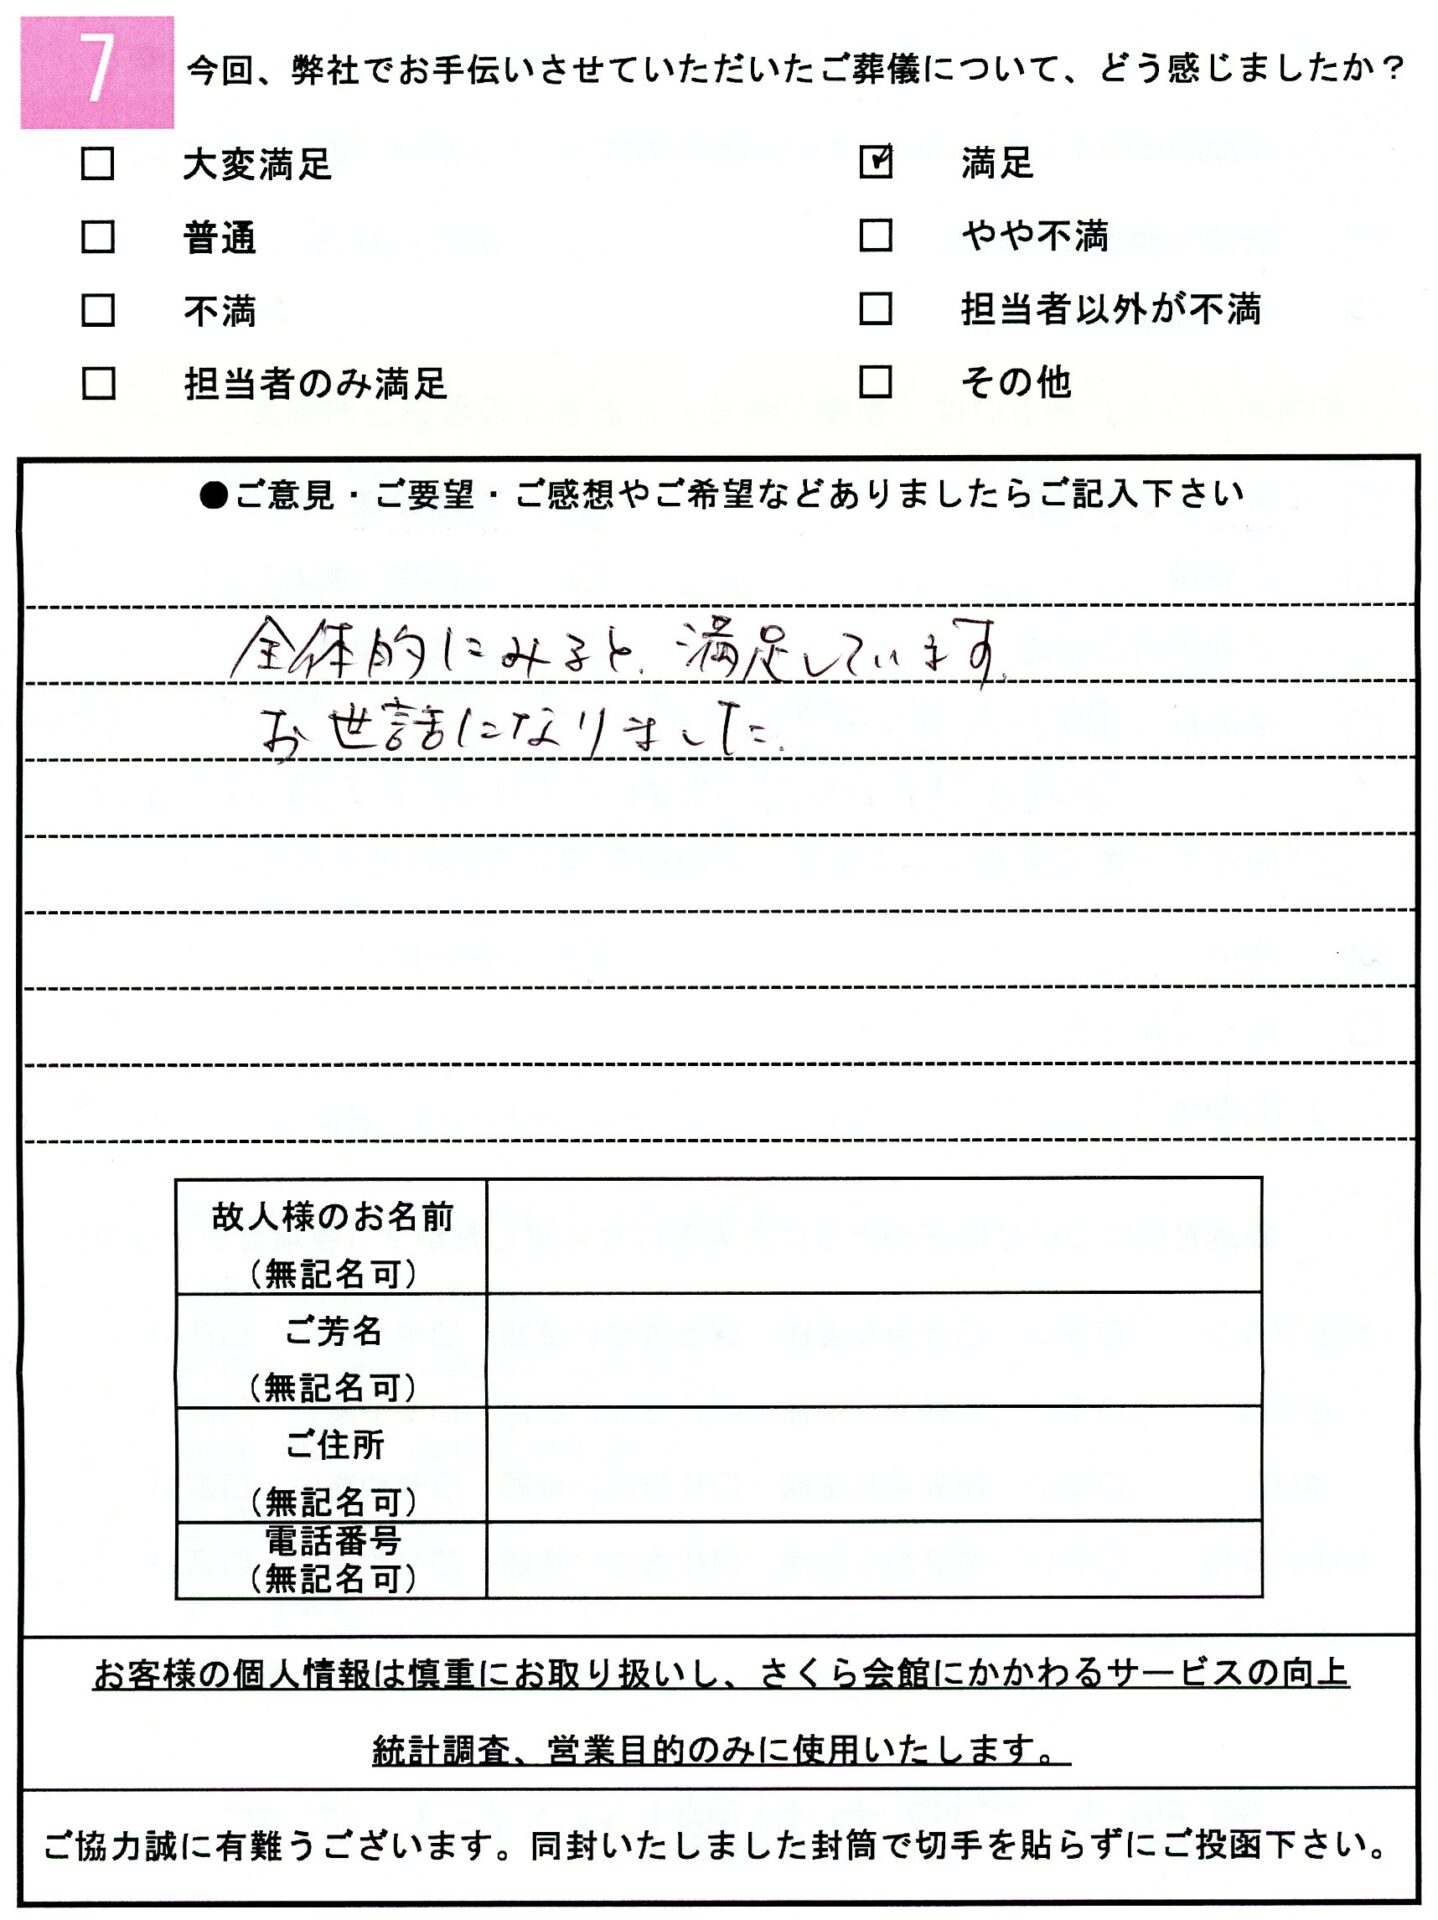 7 今回、弊社でお手伝いさせていただいたご葬儀について、どう感じましたか？
□ 大変満足 ☑ 満足
□ 普通 □ やや不満
□ 不満 □ 担当者以外が不満
□ 担当者のみ満足 □ その他
●ご意見・ご要望・ご感想やご希望などありましたらご記入下さい
全体的にみると、満足しています。
お世話になりました。
故人様のお名前
（無記名可）
ご芳名
（無記名可）
ご住所
（無記名可）
電話番号
（無記名可）
お客様の個人情報は慎重にお取り扱いし、さくら会館にかかわるサービスの向上
統計調査、営業目的のみに使用いたします。
ご協力誠に有難うございます。同封いたしました封筒で切手を貼らずにご投函下さい。